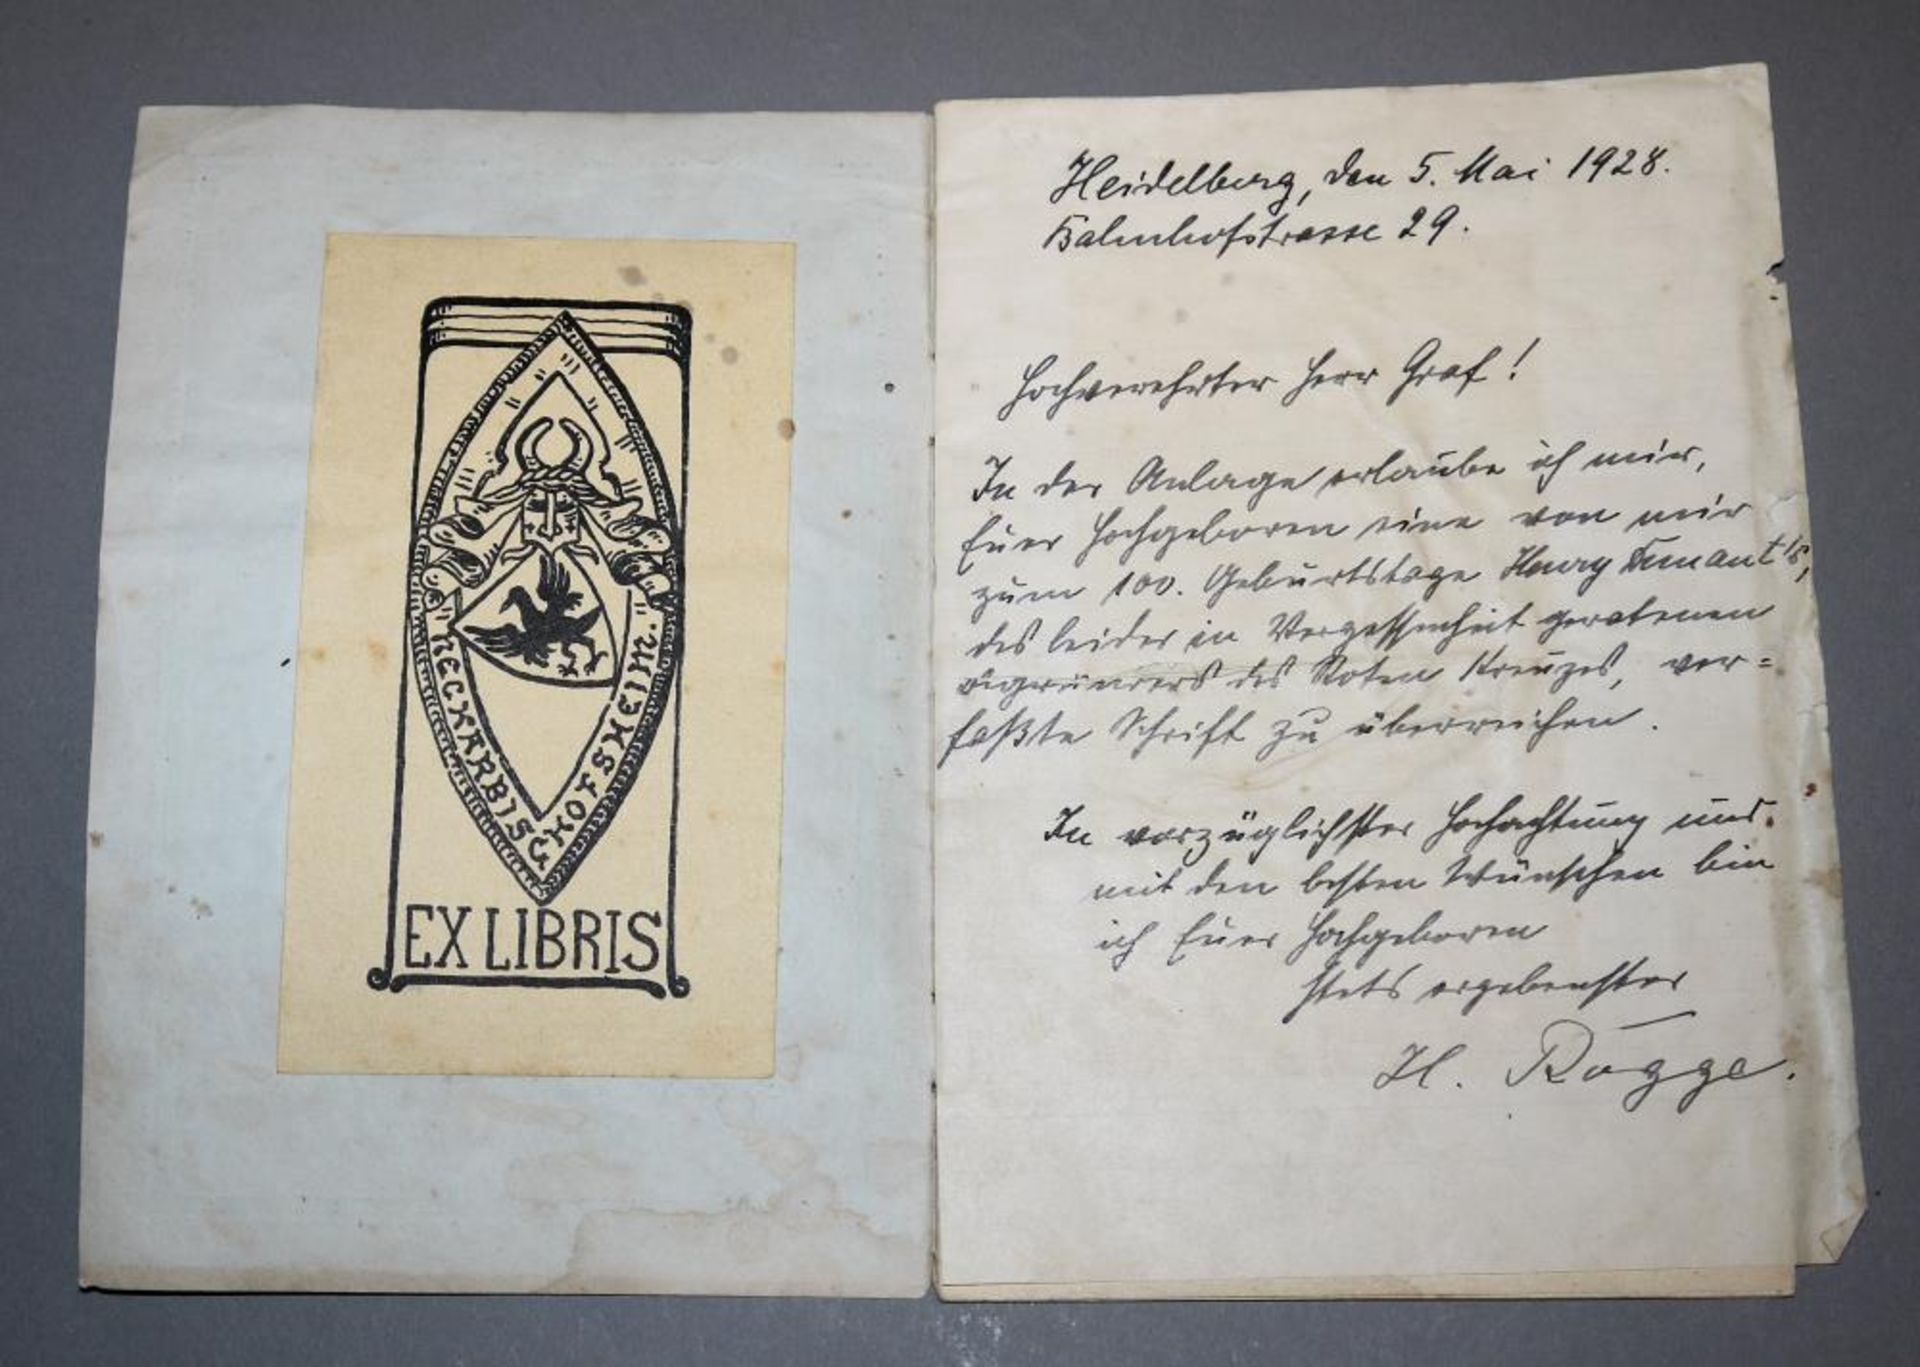 "NECKARBISCHOFSHEIM."
EX LIBRIS
Heidelberg, den 5. Mai 1928.
Bahnhofstrasse 29.
Hochverehrter Herr Graf!
In der Anlage erlaube ich mir,
Euer Hochgeboren eine von mir
zum 100. Geburtstage Henry Dunant's,
des leider in Vergessenheit geratenen
des Roten Kreuzes, ver=
faßte Schrift zu überreichen.
In vorzüglichster Hochachtung und
mit den besten Wünschen bin
ich Euer Hochgeboren
stets ergebenster
H.